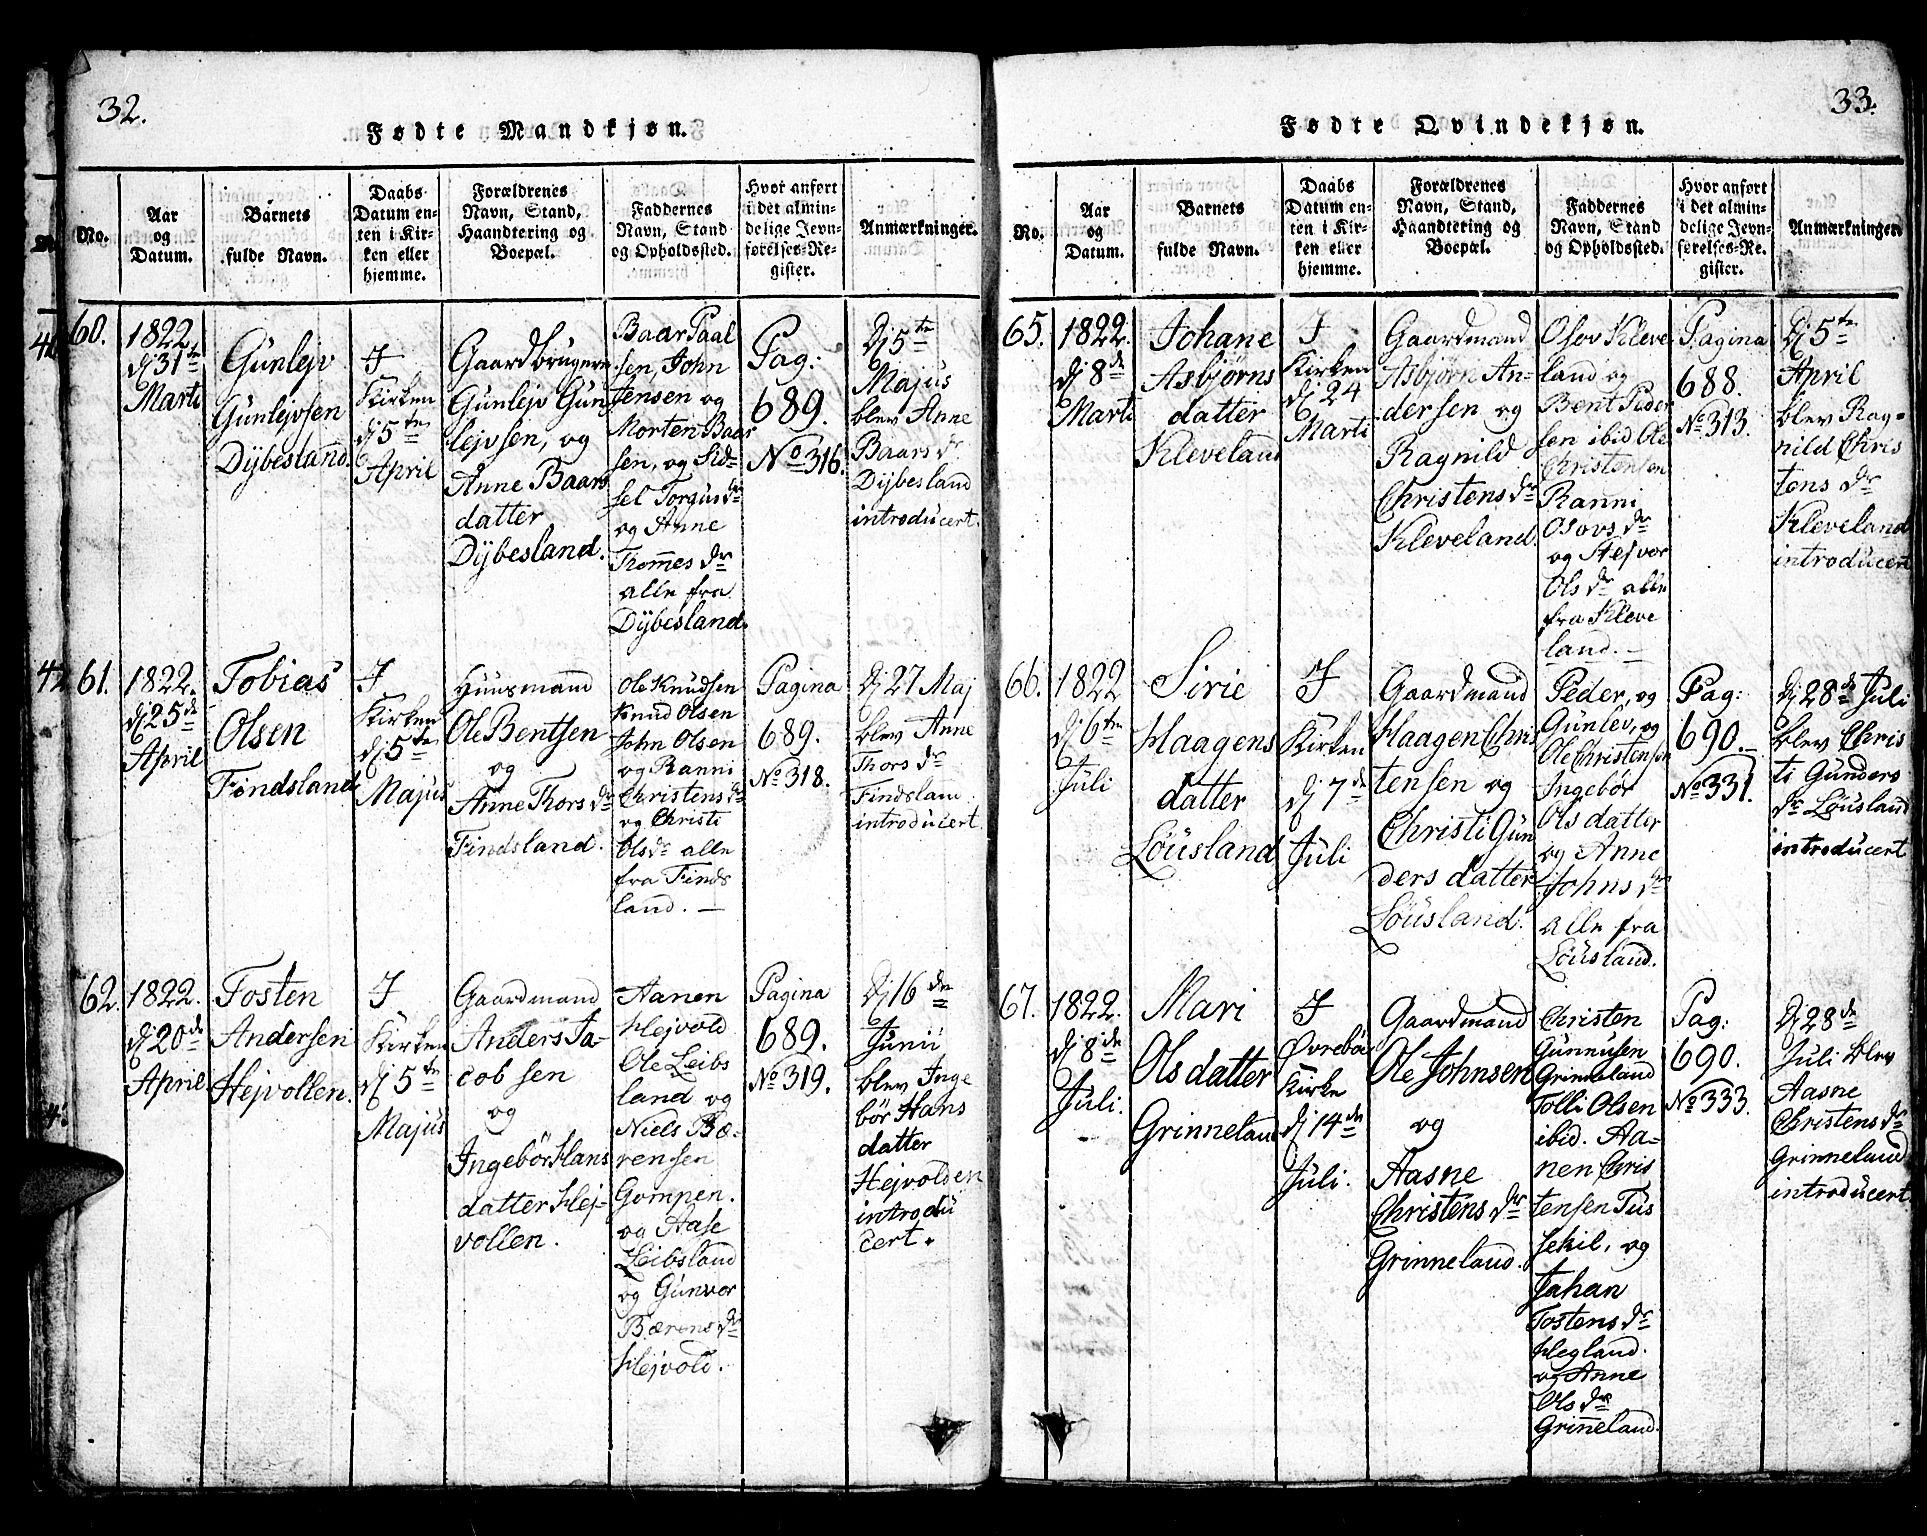 32.
Fødte Mandkjøn.
No.
Aar
og
Datum.
Barnets
fulde Navn.
Daabs
Datum en-
ten i Kir-
ken eller
hjemme.
Forældrenes
Navn, Stand,
Haandtering og
Boepæl.
Faddernes
Navn, Stand
og Opholdssted.
Hvor anført
i det almin-
delige Jevn-
førelses-Re-
gister.
Anmærkninger.
60.
1822
dj 31te
Marti
Gunlejv
Gunlejvsen
Dÿbesland.
I
Kirken
dj 5te
April
Gaardbrugern
Gunlejv Gun
lejvsen, og
Anne Baars
datter
Dÿbesland.
Baar Paal
sen, John
Jensen og
Morten Baar
sen, og Sid-
sel Torgusdr
og Anne
Trommes dr
alle fra
Dÿbesland.
Pag:
689.
No 316.
Dj 5te
Majus
blev Anne
Baars dr
Dijbesland
introducert.
61.
1822.
dj 25de
April
Tobias
Olsen
Findsland
I
Kirken
dj 5te
Majus
Huusmand
Ole Bentsen
og
Anne Thors dr
Findsland.
Ole Knudsen
Knud Olsen
John Olsen
og Ranni
Christens dr
og Christi
Olsdr alle
fra Finds
land. —
Pagina
689.
No 318.
Dj 27 Maj
blev Anne
Thors dr
Findslam
introducert.
62.
1822.
dj 20de
April
Tosten
Andersen
Hejvollen.
I
Kirken
dj 5te
Majus
Gaardmand
Anders Ja-
cobsen
og
Ingebör Hans
datter Hej-
vollen.
Aanen
Hejvold
Ole Leibs
land og
Niels Bæ-
rensen
Gompen.
og Aase
Leibsland
og Gunvor
Bærens dr
Hejvold.
Pagina
689.
No 319.
Dj 16de
Junii
blev Inge
bør Hans
datter
Hejvolden
introdu
cert.
33.
Fødte Qvindekjøn.
No.
Aar
og
Datum.
Barnets
fulde Navn.
Daabs
Datum en-
ten i Kir-
ken eller
hjemme.
Forældrenes
Navn, Stand,
Haandtering og
Boepæl.
Faddernes
Navn, Stand
og Opholdssted.
Hvor anført
i det almin-
delige Jevn-
førelses-Re-
gister.
Anmærkninger
65.
1822.
dj 8de
Marti
Johane
Asbjørns
datter
Kleveland
I
Kirken
dj 24
Marti
Gaardmand
Asbjørn An-
dersen og
Ragnild
Christens dr
Kleveland.
Osov Kleve
land og
Bent Peder
sen ibid Ole
Christensen
Ranni
Osovs dr
og Stejvor
Ols dr alle
fra Kleve
land. —
Pagina
688.
No 313.
Dj 5te
April
blev Rag-
nild Chris
tens dr
Kleveland
introducert
66.
1822
dj 6te
Juli
Sirie
Haagens
datter
Löusland
I
Kirken
dj 7de
Juli
Gaardmand
Haagen Chris
tensen og
Christi Gun
ders datter
Löusland.
Peder, og
Gunlev, og
Ole Christensen
Ingebör
Ols datter
og Anne
Johns dr
alle fra
Löusland.
Pag:
690.
No 331.
Dj 28de Juli
blev Chris
ti Gunders
dr Löusland
introducert
67.
1822.
dj 8de
Juli.
Mari
Ols datter
Grinneland
I
Øvrebøe
Kirke
dj 14de
Juli.
Gaardmand
Ole Johnsen
og
Aasne
Christens dr
Grinneland.
Christen
Gunnusen
Grinneland
Tolli Olsen
ibid. Aa-
nen Chris
tensen Tus
sekil, og
Jahan
Tostens dr
Hegland.
og Anne
Ols dr
Grinneland.
Pag:
690.
No 333.
Dj 28de
Juli blev
Aasne
Christens dr
Grinneland
introducert.